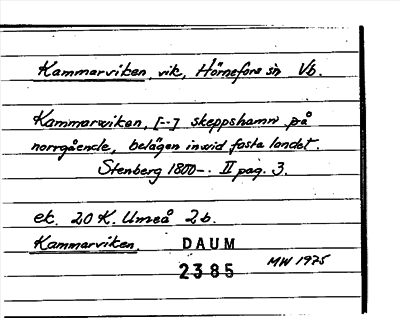 Kammarviken, vik, Hörnefors sn Vb.
Kammarwiken, [--] skeppshamn på
norrgående, belägen inwid fasta landet.
Stenberg 1800-. II pag. 3.
ek. 20 K. Umeå 2b.
Kammarviken.
DAUM
2385
MW 1975